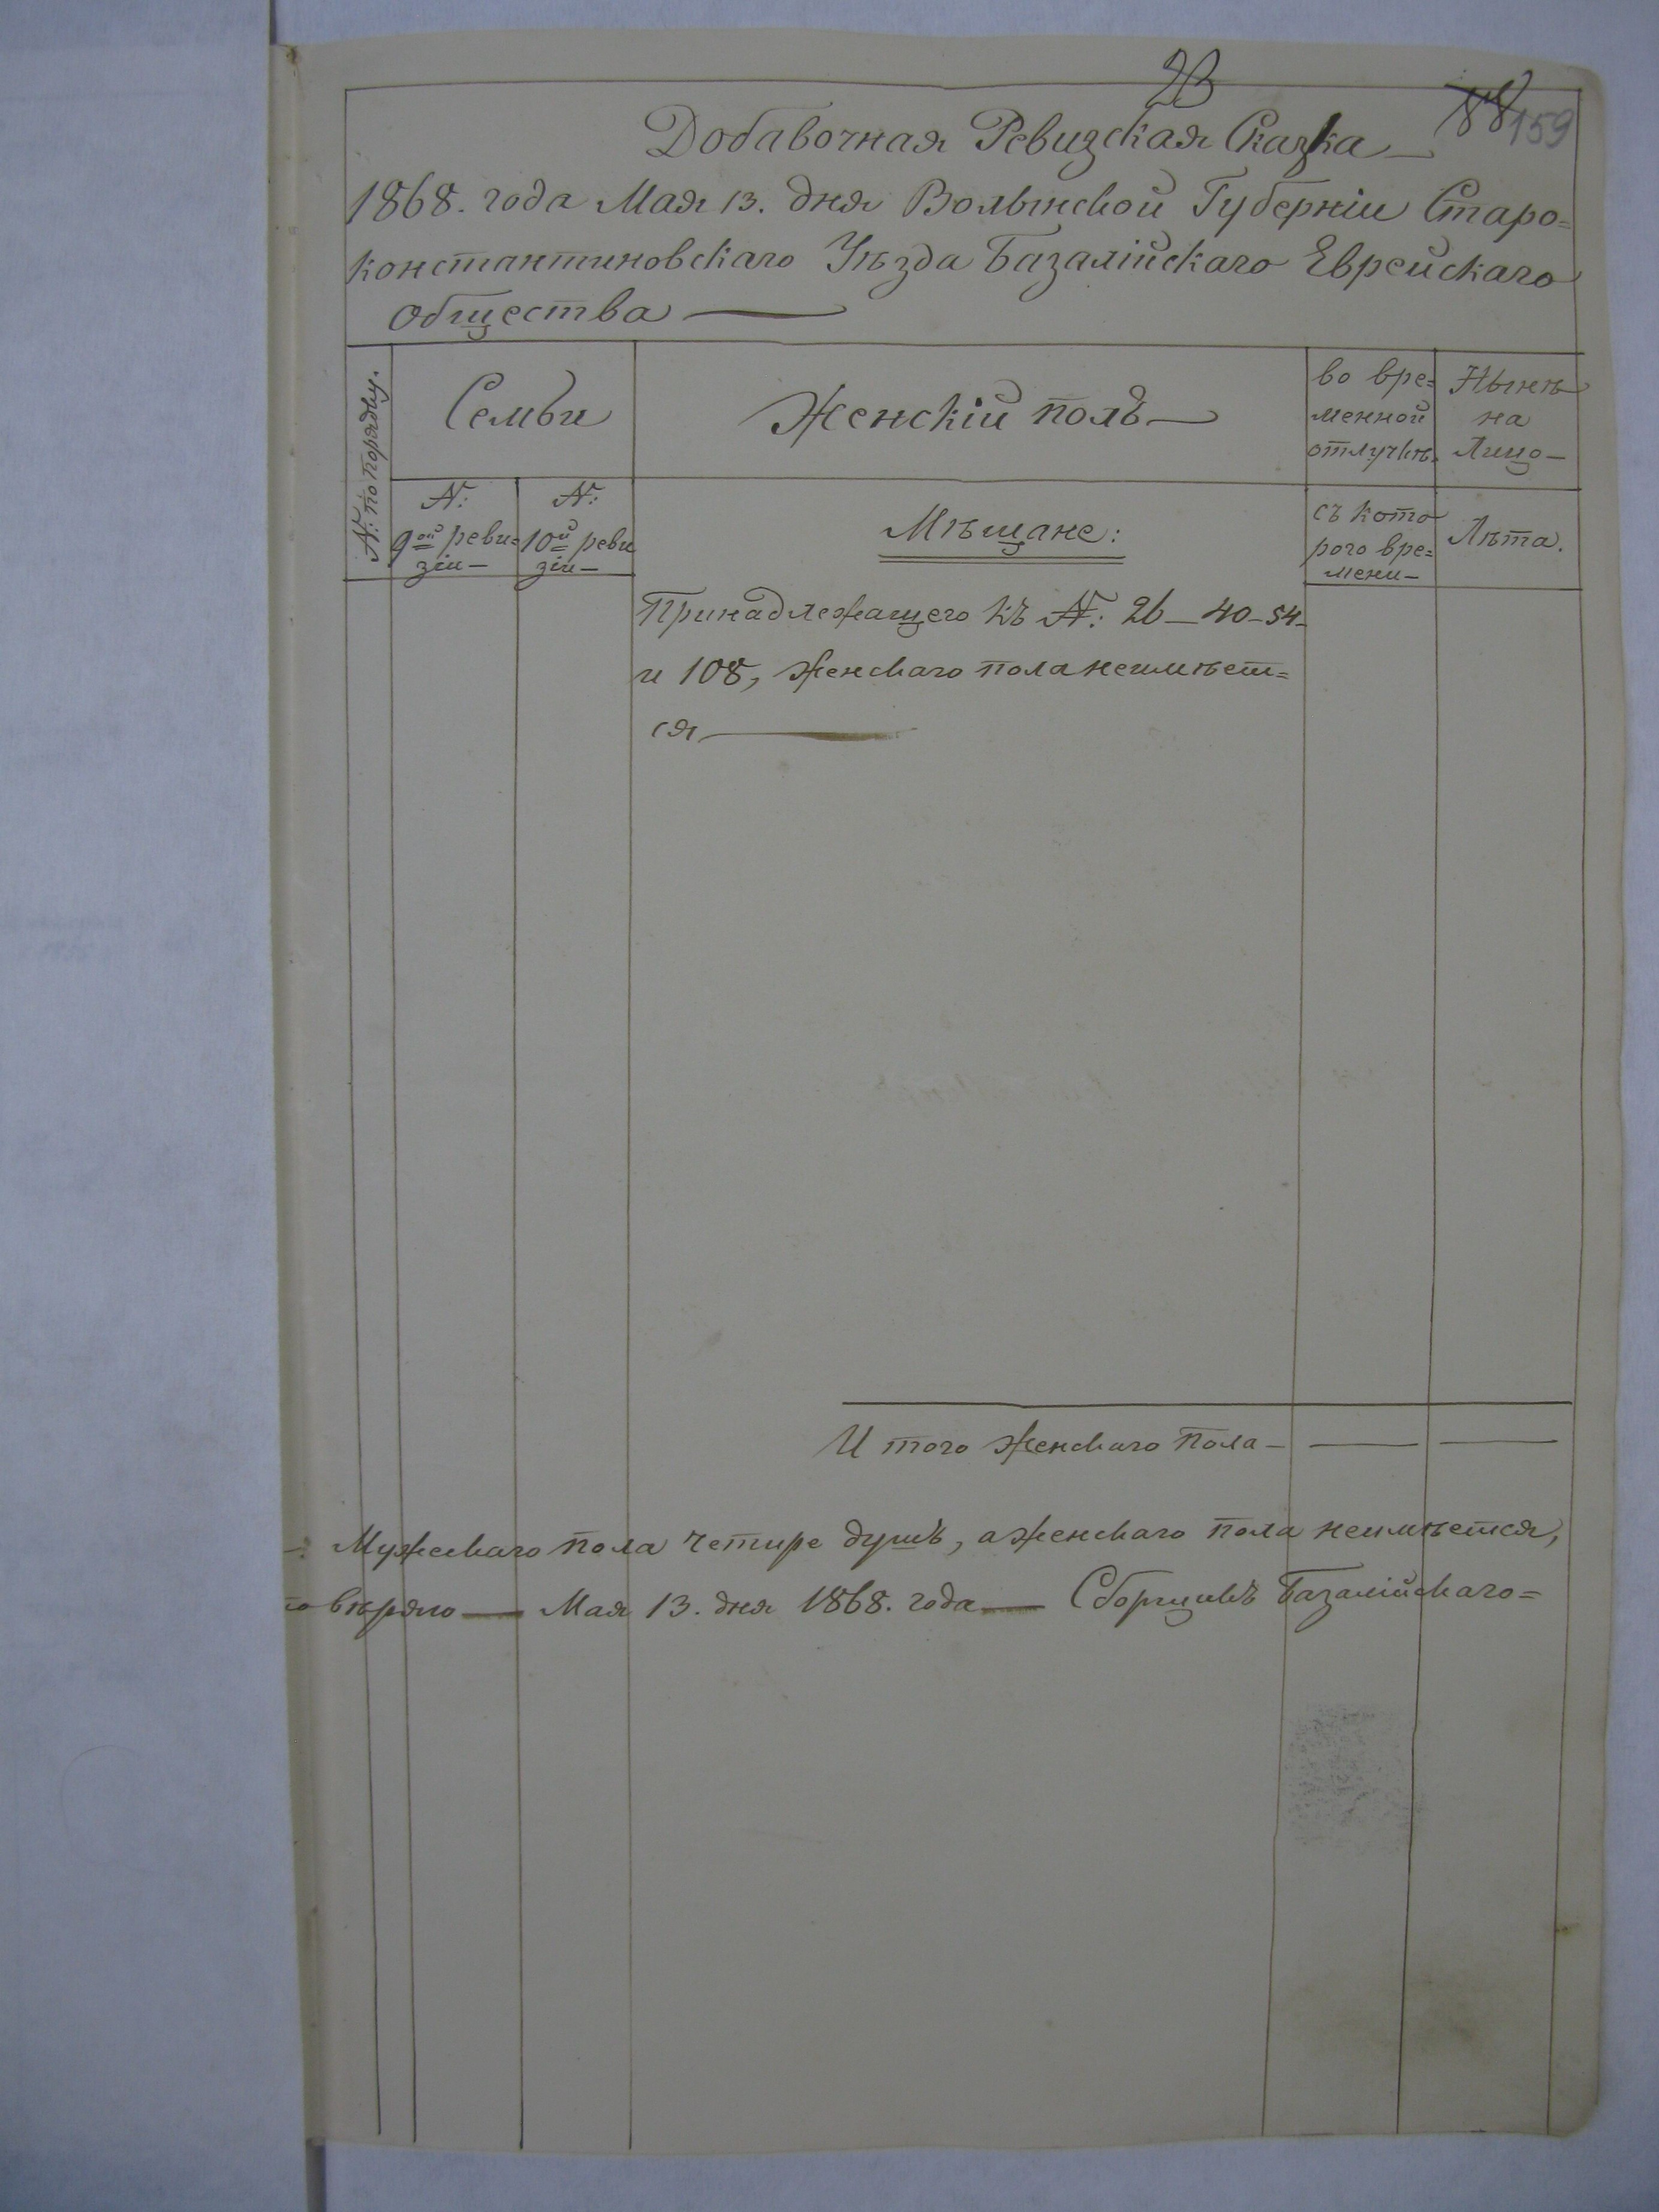 23
88 159
Добавочная Ревизская Сказка —
1868. года Мая 13. дня Волынской Губерніи Старо=
константиновскаго Уѣзда Базалійскаго Еврейскаго
общества —
№: по порядку.
Семьи
Женскій полъ —
во вре=
менной
отлучкѣ.
Нынѣ
на
Лицо —
№:
9ой реви=
зіи —
№:
10й реви
зіи —
Мѣщане:
съ кото
рого вре=
мени —
Лѣта.
Принадлежащего къ №: 26 — 40 — 54 —
и 108, женскаго пола неимѣет=
ся —
И того женскаго пола — — —
Мужескаго пола четире душъ, а женскаго пола неимѣется,
вѣряю — Мая 13. дня 1868. года — Сборщикъ Базалійскаго =